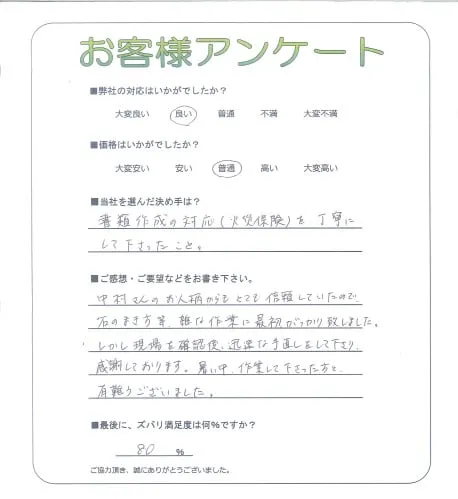 お客様アンケート
■弊社の対応はいかがでしたか？
大変良い 良い 普通 不満 大変不満
■価格はいかがでしたか？
大変安い 安い 普通 高い 大変高い
■当社を選んだ決め手は？
書類作成の対応(火災保険)を丁寧に
して下さったこと。
■ご感想・ご要望などをお書き下さい。
中村さんのお人柄からもとても信頼していたので、
石のまき方等、雑な作業に最初がっかり致しました。
しかし現場を確認後、迅速な手直しをして下さり、
感謝しております。暑い中、作業して下さった方々、
有難うございました。
■最後に、ズバリ満足度は何%ですか？
80 %
ご協力頂き、誠にありがとうございました。